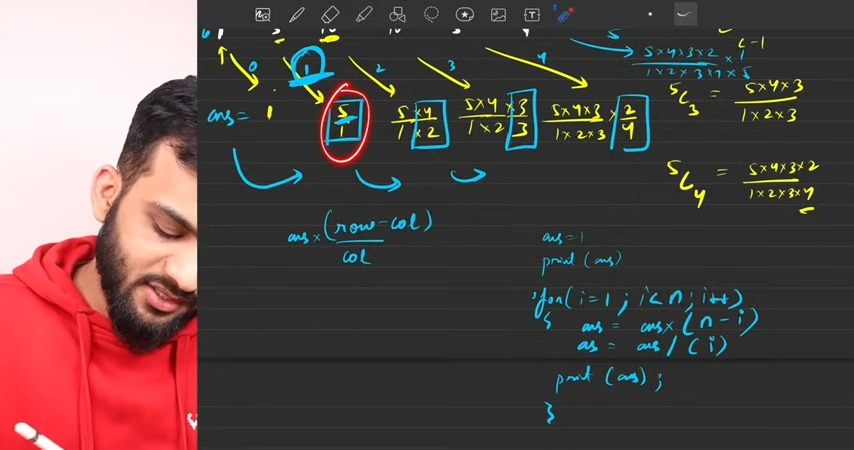 6
5
0 1 2 3 4
5×4×3×2 × 1
1×2×3×4×5
ans = 1 5/1 5×4/1×2 5×4×3/1×2×3 5×4×3/1×2×3 × 2/4
⁵C₃ = 5×4×3/1×2×3
⁵C₄ = 5×4×3×2/1×2×3×4
ans × (row-col)
col
ans = 1
print (ans)
for(i=1; i<n; i++)
{ ans = ans × (n-i)
as = ans / (i)
print (ans);
}